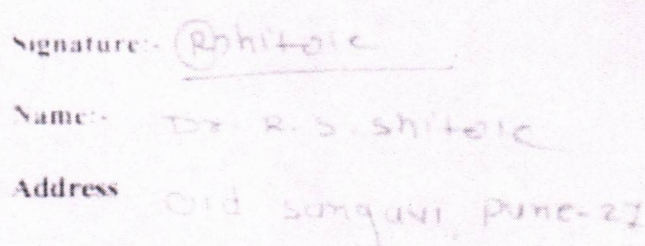 Signature:- Rshitole
Name:- Dr. R. S. Shitole
Address Old sangavi, pune-27